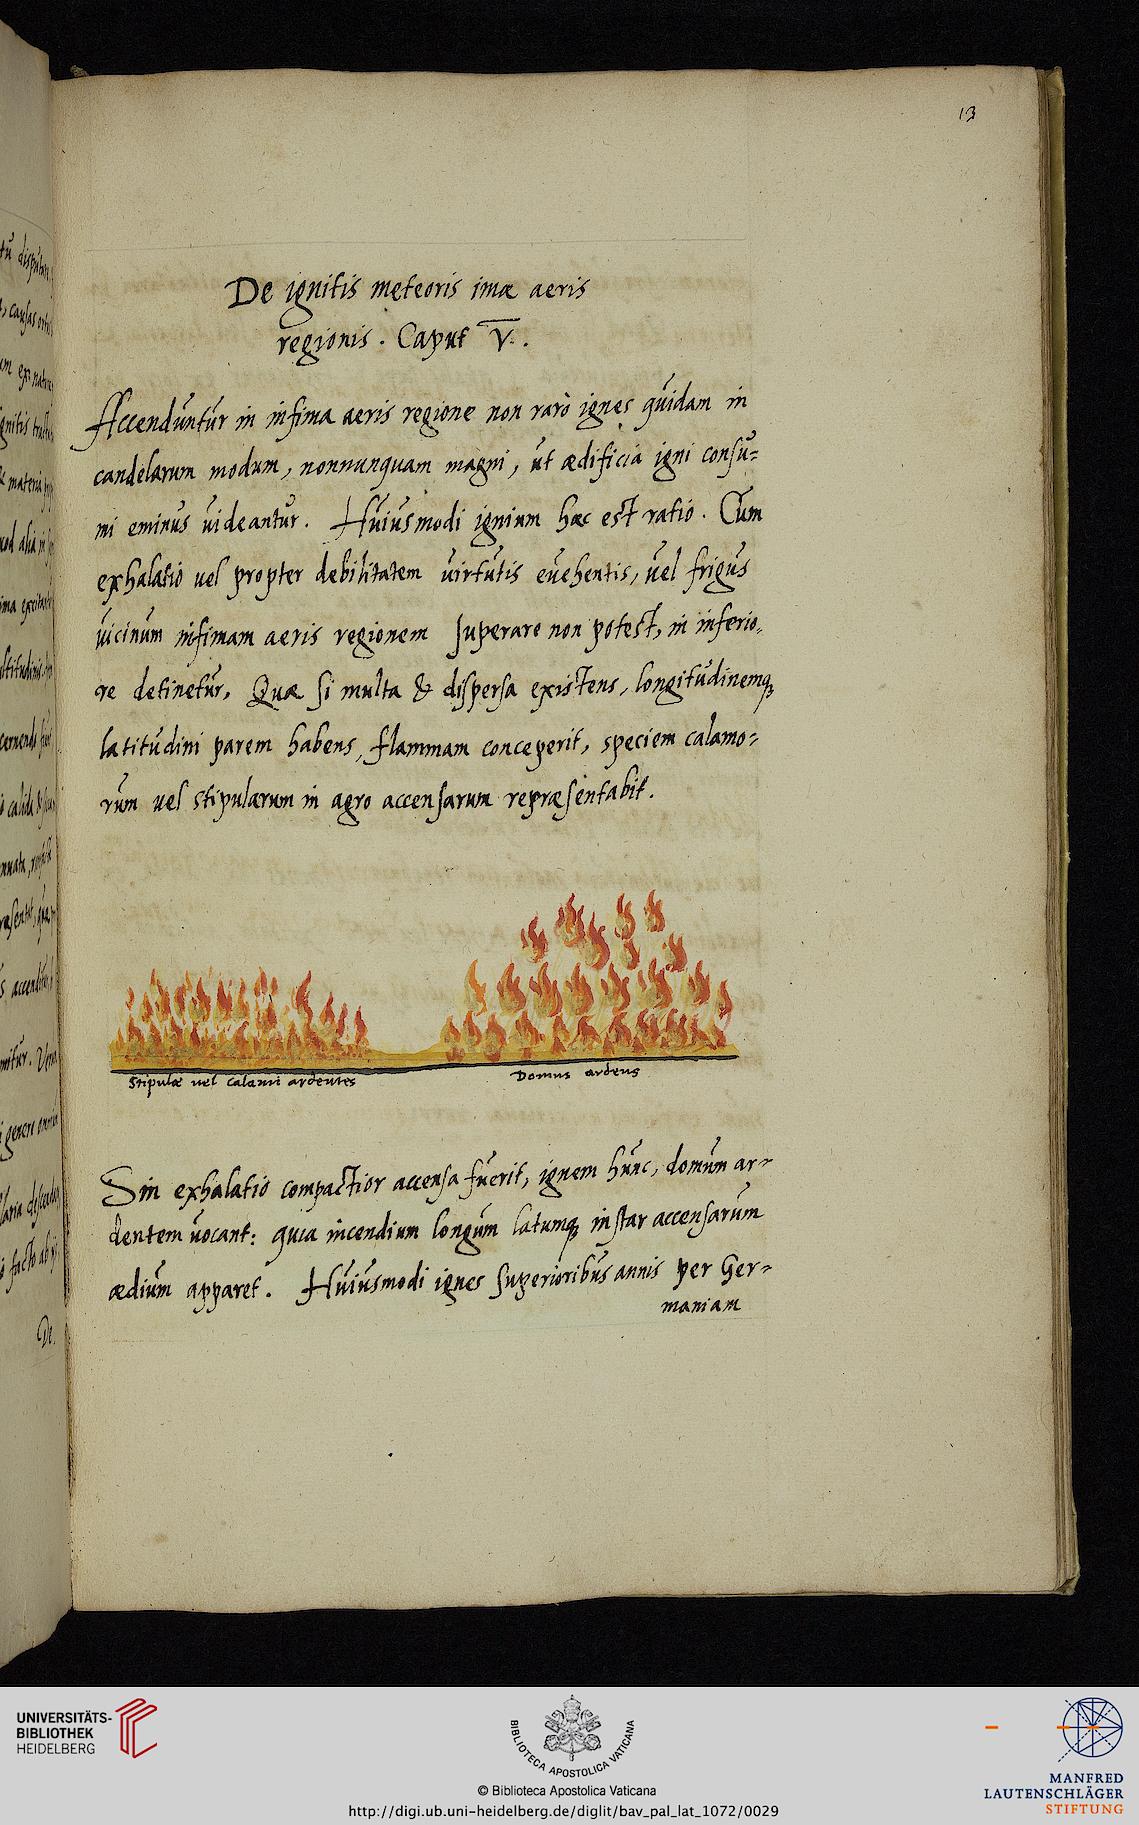 13
De ignitis meteoris imæ aeris
regionis. Caput V.
Accenduntur in infima aeris regione non rarò ignes quidam in
candelarum modum, nonnunquam magni, ut ædificia igni consu=
mi eminus uideantur. Huiusmodi ignium hæc est ratio. Cum
exhalatio uel propter debilitatem uirtutis euehentis, uel frigus
uicinum infimam aeris regionem superare non potest, in inferio=
re detinetur. Quæ si multa & dispersa existens, longitudinemq́
latitudini parem habens, flammam conceperit, speciem calamo=
rum uel stipularum in agro accensarum repræsentabit.
Stipulæ uel calami ardentes
Domus ardens
Sin exhalatio compactior accensa fuerit, ignem hunc, domum ar=
dentem uocant: quia incendium longum latumq́ instar accensarum
ædium apparet. Huiusmodi ignes superioribus annis per Ger=
maniam
De
UNIVERSITÄTS-
BIBLIOTHEK
HEIDELBERG
BIBLIOTECA APOSTOLICA VATICANA
© Biblioteca Apostolica Vaticana
http://digi.ub.uni-heidelberg.de/diglit/bav_pal_lat_1072/0029
MANFRED
LAUTENSCHLÄGER
STIFTUNG